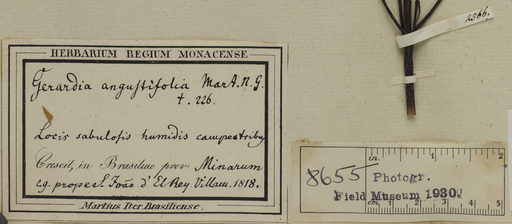 2566.
HERBARIUM REGIUM MONACENSE
Gerardia angustifolia Mart. N. G.
t. 226.
Locis sabulosis humidis campestribus
Crescit, in Brasiliae prov. Minarum
prope S. João d' El Rey Villam. 1818.
Martius Iter Brasiliense.
8655
in. 1 2
Photogr.
Field Museum 1930.
cm. 1 2 3 4 5